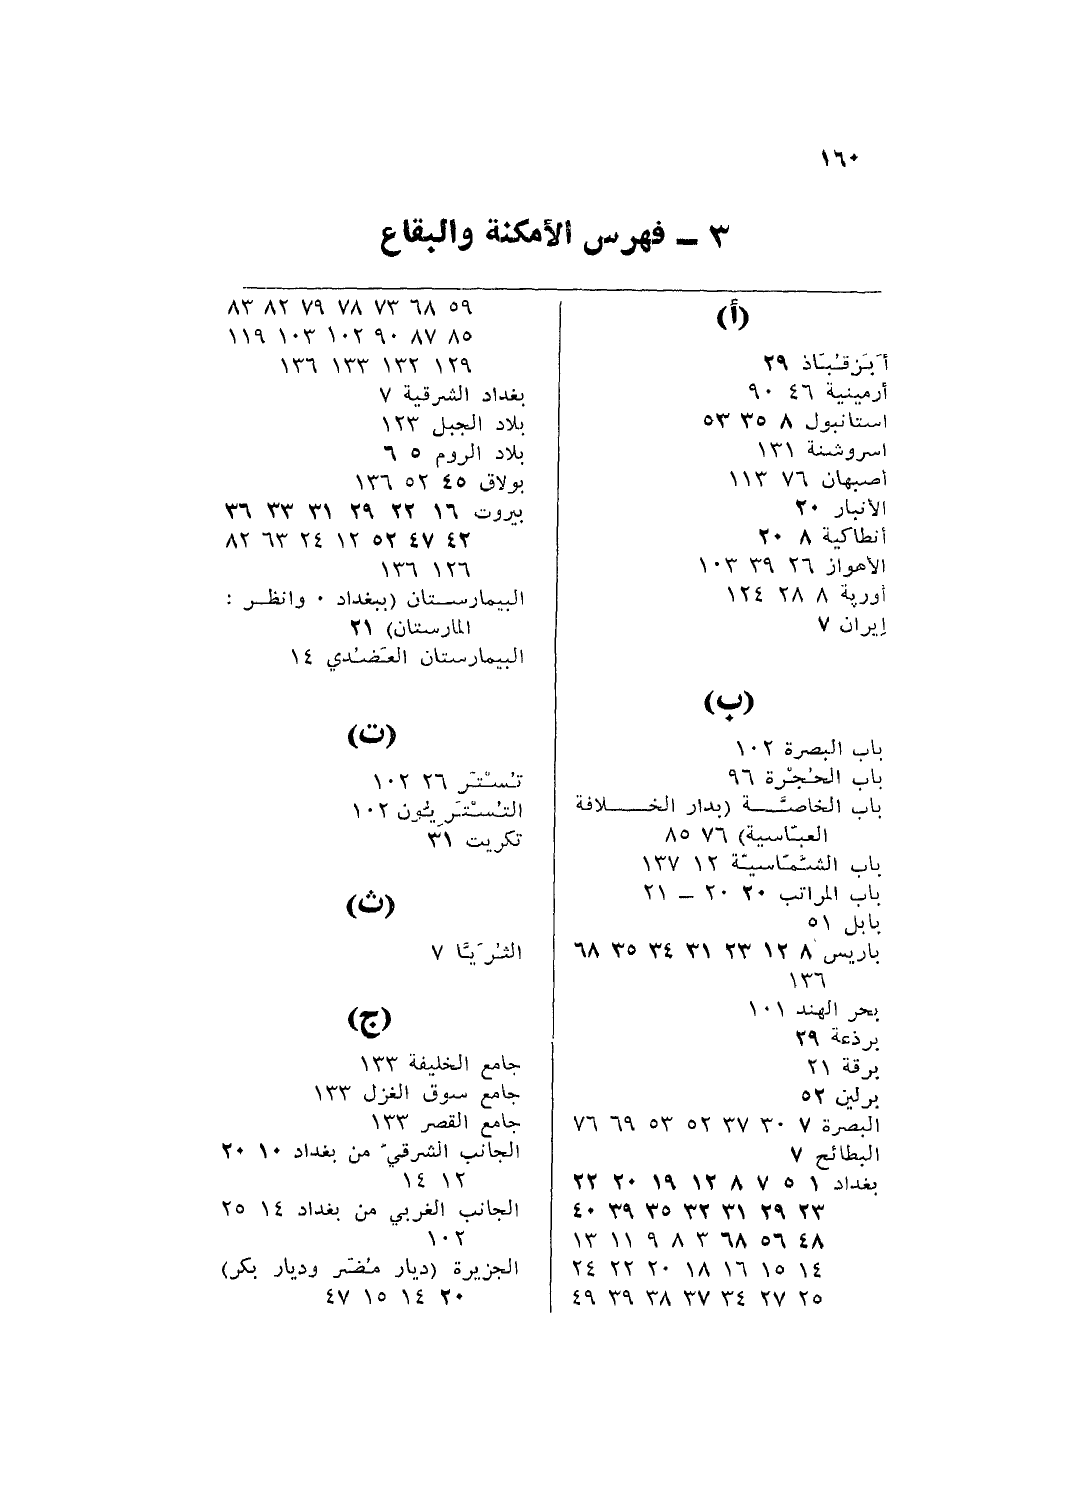 ١٦٠
٣ ــ فهرس الأمكنة والبقاع
(أ)
أَبَزقُبَاذ ٢٩
أرمينية ٤٦ ٩٠
استانبول ٨ ٣٥ ٥٣
اسروشنة ١٣١
أصبهان ٧٦ ١١٣
الأنبار ٢٠
أنطاكية ٨ ٢٠
الأهواز ٢٦ ٣٩ ١٠٣
أوربة ٨ ٢٨ ١٢٤
إيران ٧
(ب)
باب البصرة ١٠٢
باب الحُجْرة ٩٦
باب الخاصّـــة (بدار الخـــلافة
العبّاسية) ٧٦ ٨٥
باب الشمّاسيّة ١٢ ١٣٧
باب المراتب ٢٠ ٢٠ ــ ٢١
بابل ٥١
باريس ٨ ١٢ ٢٣ ٣١ ٣٤ ٣٥ ٦٨
١٣٦
بحر الهند ١٠١
برذعة ٢٩
برقة ٢١
برلين ٥٢
البصرة ٧ ٣٠ ٣٧ ٥٢ ٥٣ ٦٩ ٧٦
البطائح ٧
بغداد ١ ٥ ٧ ٨ ١٢ ١٩ ٢٠ ٢٢
٢٣ ٢٩ ٣١ ٣٢ ٣٥ ٣٩ ٤٠
٤٨ ٥٦ ٦٨ ٣ ٨ ٩ ١١ ١٣
١٤ ١٥ ١٦ ١٨ ٢٠ ٢٢ ٢٤
٢٥ ٢٧ ٣٤ ٣٧ ٣٨ ٣٩ ٤٩
٥٩ ٦٨ ٧٣ ٧٨ ٧٩ ٨٢ ٨٣
٨٥ ٨٧ ٩٠ ١٠٢ ١٠٣ ١١٩
١٢٩ ١٣٢ ١٣٣ ١٣٦
بغداد الشرقية ٧
بلاد الجبل ١٢٣
بلاد الروم ٥ ٦
بولاق ٤٥ ٥٢ ١٣٦
بيروت ١٦ ٢٢ ٢٩ ٣١ ٣٣ ٣٦
٤٢ ٤٧ ٥٢ ١٢ ٢٤ ٦٣ ٨٢
١٢٦ ١٣٦
البيمارستان (ببغداد ٠ وانظر :
المارستان) ٢١
البيمارستان العَضُدي ١٤
(ت)
تُسْتَر ٢٦ ١٠٢
التُسْتَرِيُّون ١٠٢
تكريت ٣١
(ث)
الثُرَيّا ٧
(ج)
جامع الخليفة ١٣٣
جامع سوق الغزل ١٣٣
جامع القصر ١٣٣
الجانب الشرقيّ من بغداد ١٠ ٢٠
١٢ ١٤
الجانب الغربي من بغداد ١٤ ٢٥
١٠٢
الجزيرة (ديار مُضَر وديار بكر)
٢٠ ١٤ ١٥ ٤٧